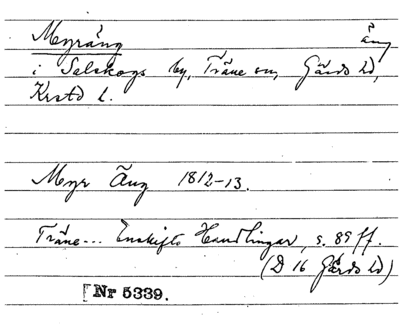 Myräng äng
i Salskogs by, Träne sn, Gärds hd,
Krstd l.
Myr Äng 1812-13.
Träne... Enskifts Handlingar, s. 89 ff.
(D 16 Gärds hd)
Nr 5339.